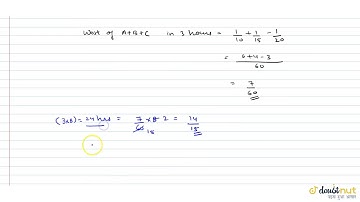 Work of A+B+C in 3 hours = 1/10 + 1/15 - 1/20
= 6+4-3/60
= 7/60
(3×8) = 24 hrs = 7/60 × 8 2 = 14/15
15
doubtnut